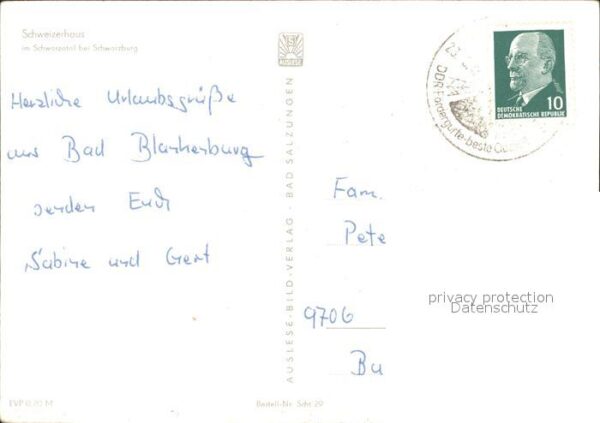 Schweizerhaus
im Schwarzatal bei Schwarzburg
Herzliche Urlaubsgrüße
aus Bad Blankenburg
senden Euch
Sabine und Gert
AUSLESE-BILD-VERLAG - BAD SALZUNGEN
10
DEUTSCHE
DEMOKRATISCHE REPUBLIK
DDR Fördergurte-beste
Fam.
Pete
9706
Bu
privacy protection
Datenschutz
EVP 0,20 M
Bestell-Nr. Schr 29